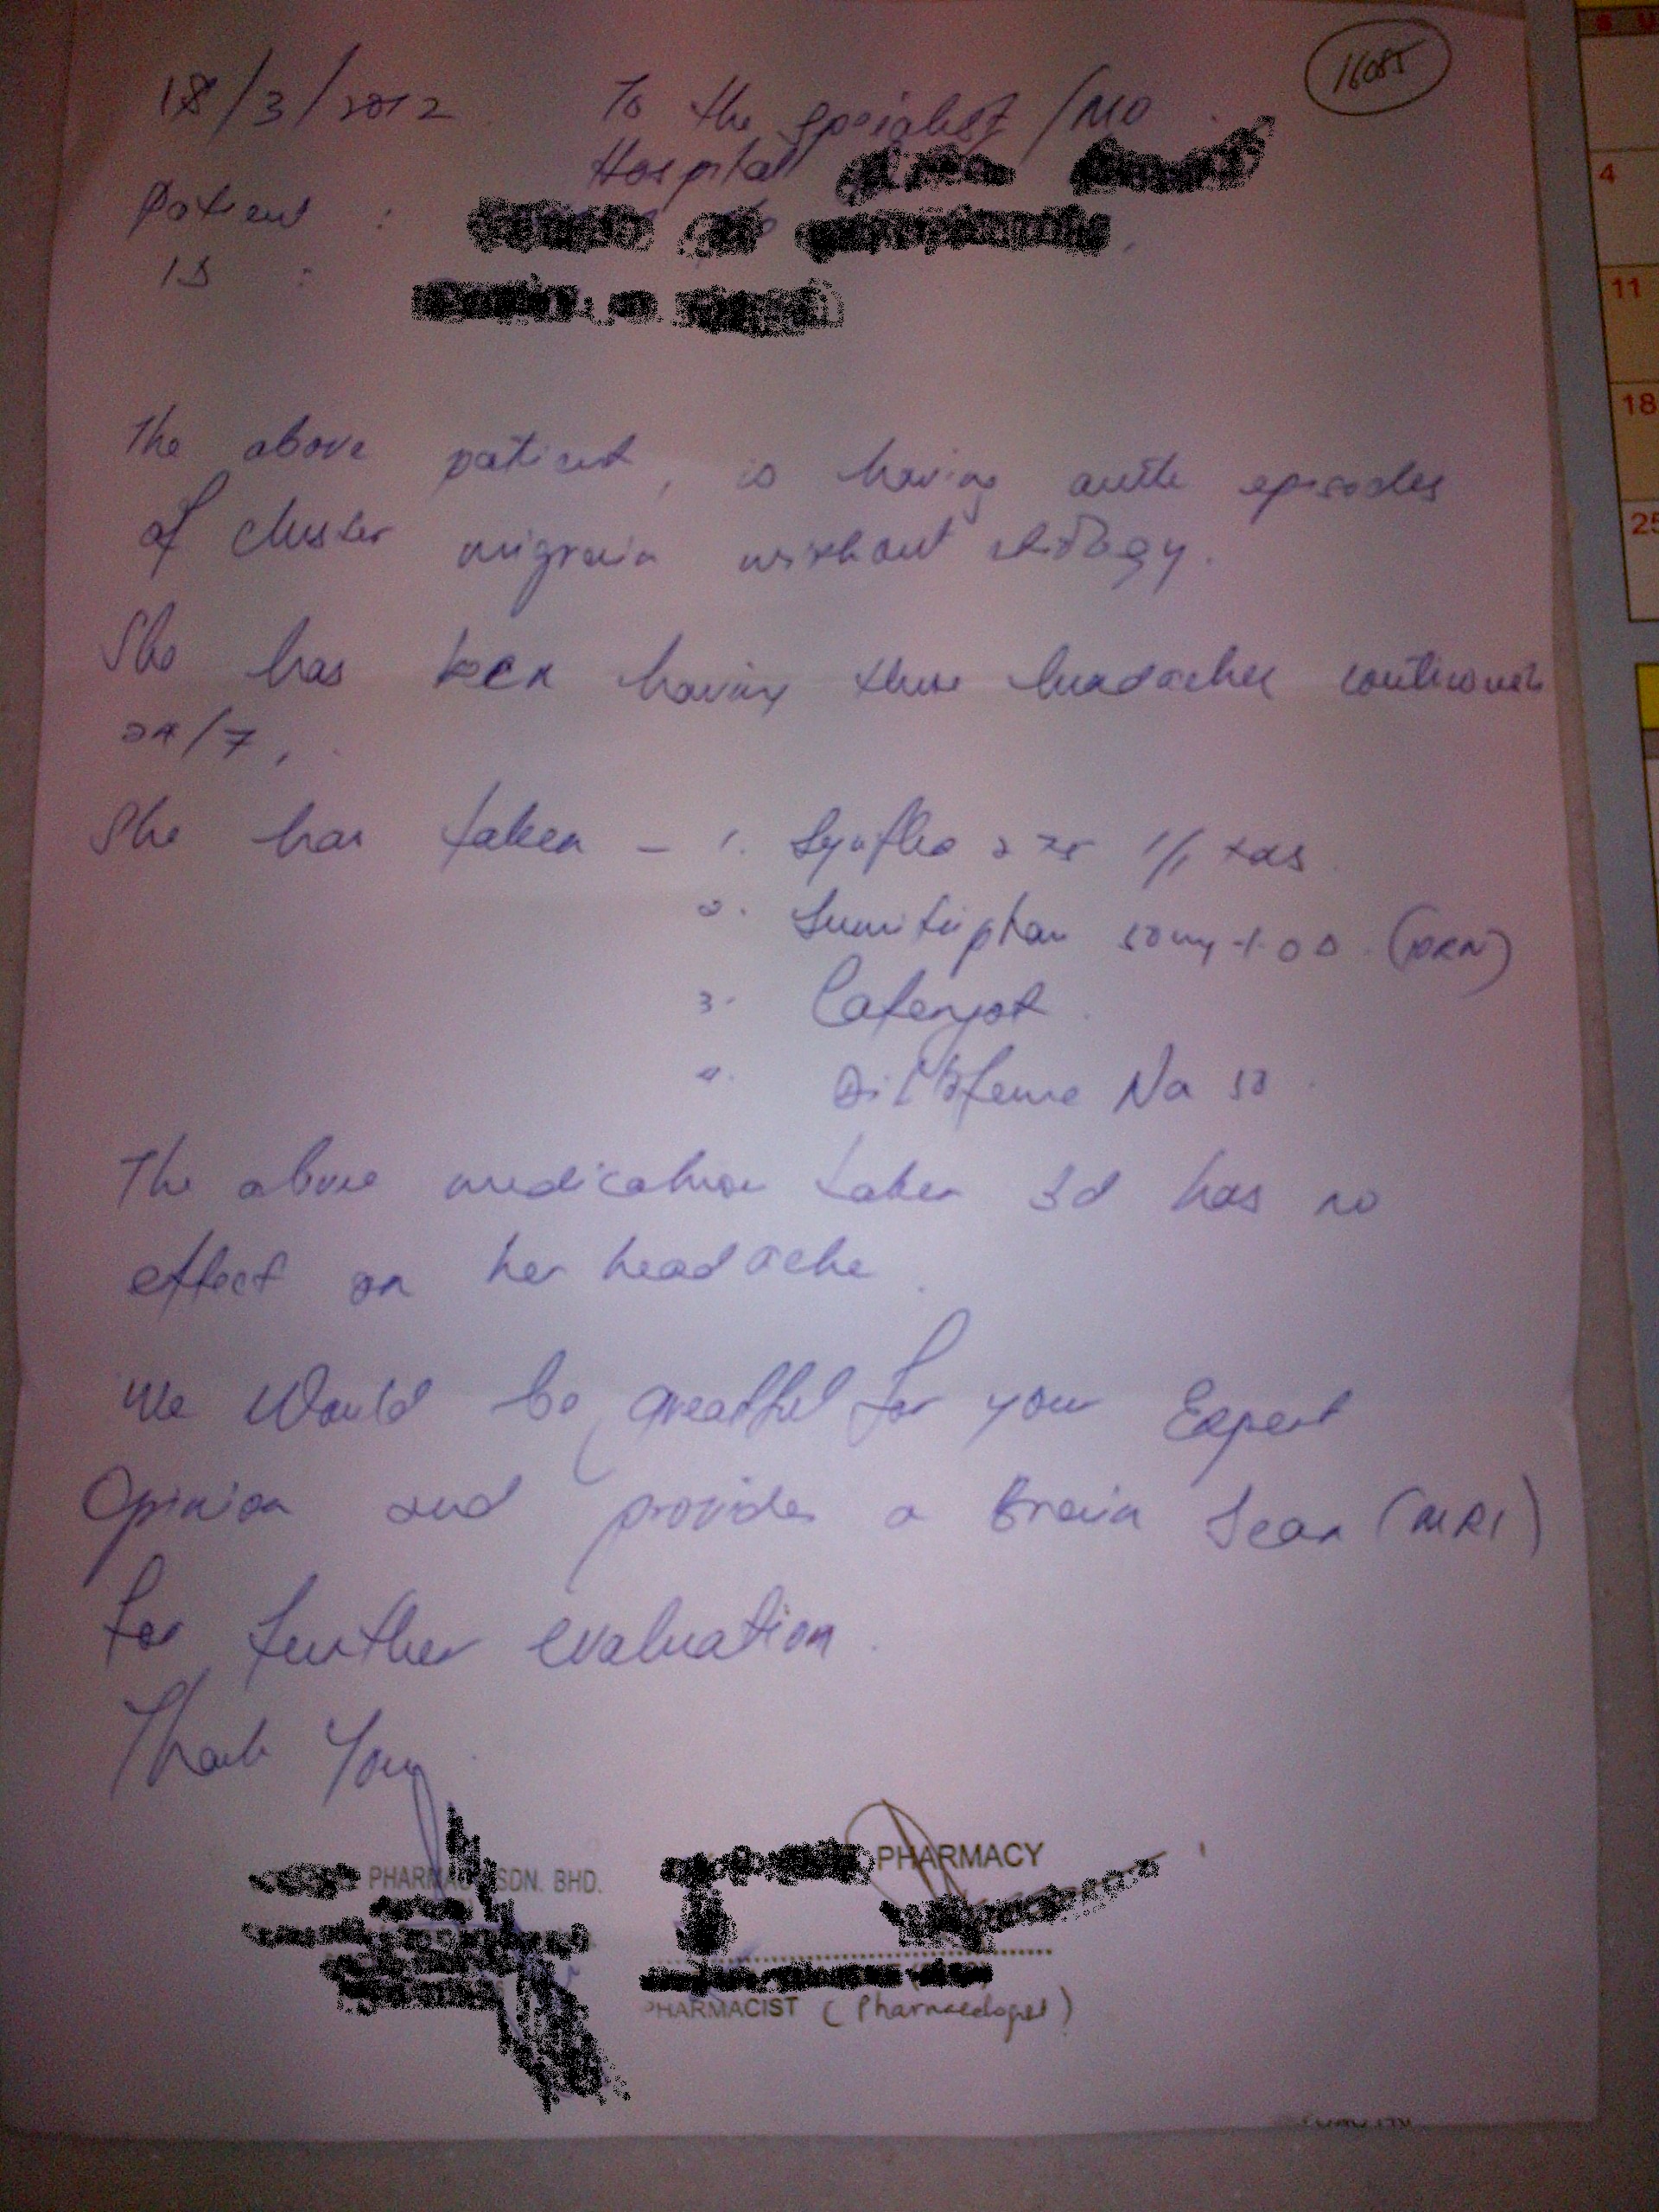 16085
18/3/2012 To the spcialist / MO
Hospital
Patient :
:
The above patient, is having episodes
of cluster migrain without
She has been having these headaches
24/7,
She has taken - 1. Synflex 275 1/1 tds
2. 50mg 1 OD (PRN)
3. Cafergot
4. Na 50
The above medication taken has no
effect on her headache
We Would be for your Expert
Opinion and provide a Brain Scan (MRI)
for further evaluation.
Thank You
PHARMACY SDN. BHD.
PHARMACY
PHARMACIST (Pharmacologist)
4
11
18
25